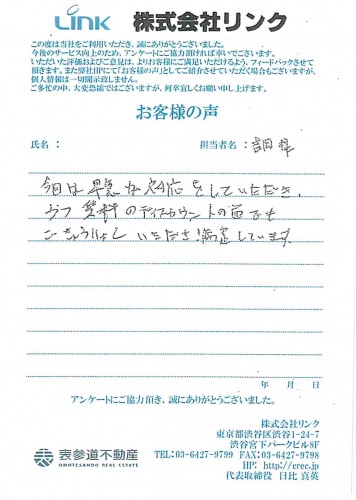 LINK 株式会社リンク
この度は当社をご利用いただき、誠にありがとうございました。
今後のサービス向上のため、アンケートにご協力頂ければ幸いでございます。
いただいた評価およびご意見は、よりお客様にご満足いただけるよう、フィードバックさせて
頂きます。また弊社HPにて「お客様の声」としてご紹介させていただく場合もございますが、
個人情報は一切開示致しません。
ご多忙の中、大変恐縮ではございますが、何卒宜しくお願い申し上げます。
お客様の声
氏名： 担当者名：吉田
今回は早急な対応をしていただき、
かつ 賃料のディスカウントの面でも
いただき満足しています
年 月 日
アンケートにご協力頂き、誠にありがとうございました。
株式会社リンク
東京都渋谷区渋谷1-24-7
渋谷宮下パークビル8F
TEL:03-6427-9799 FAX:03-6427-9798
HP: http://erec.jp
代表取締役 日比 真英
表参道不動産
OMOTESANDO REAL ESTATE